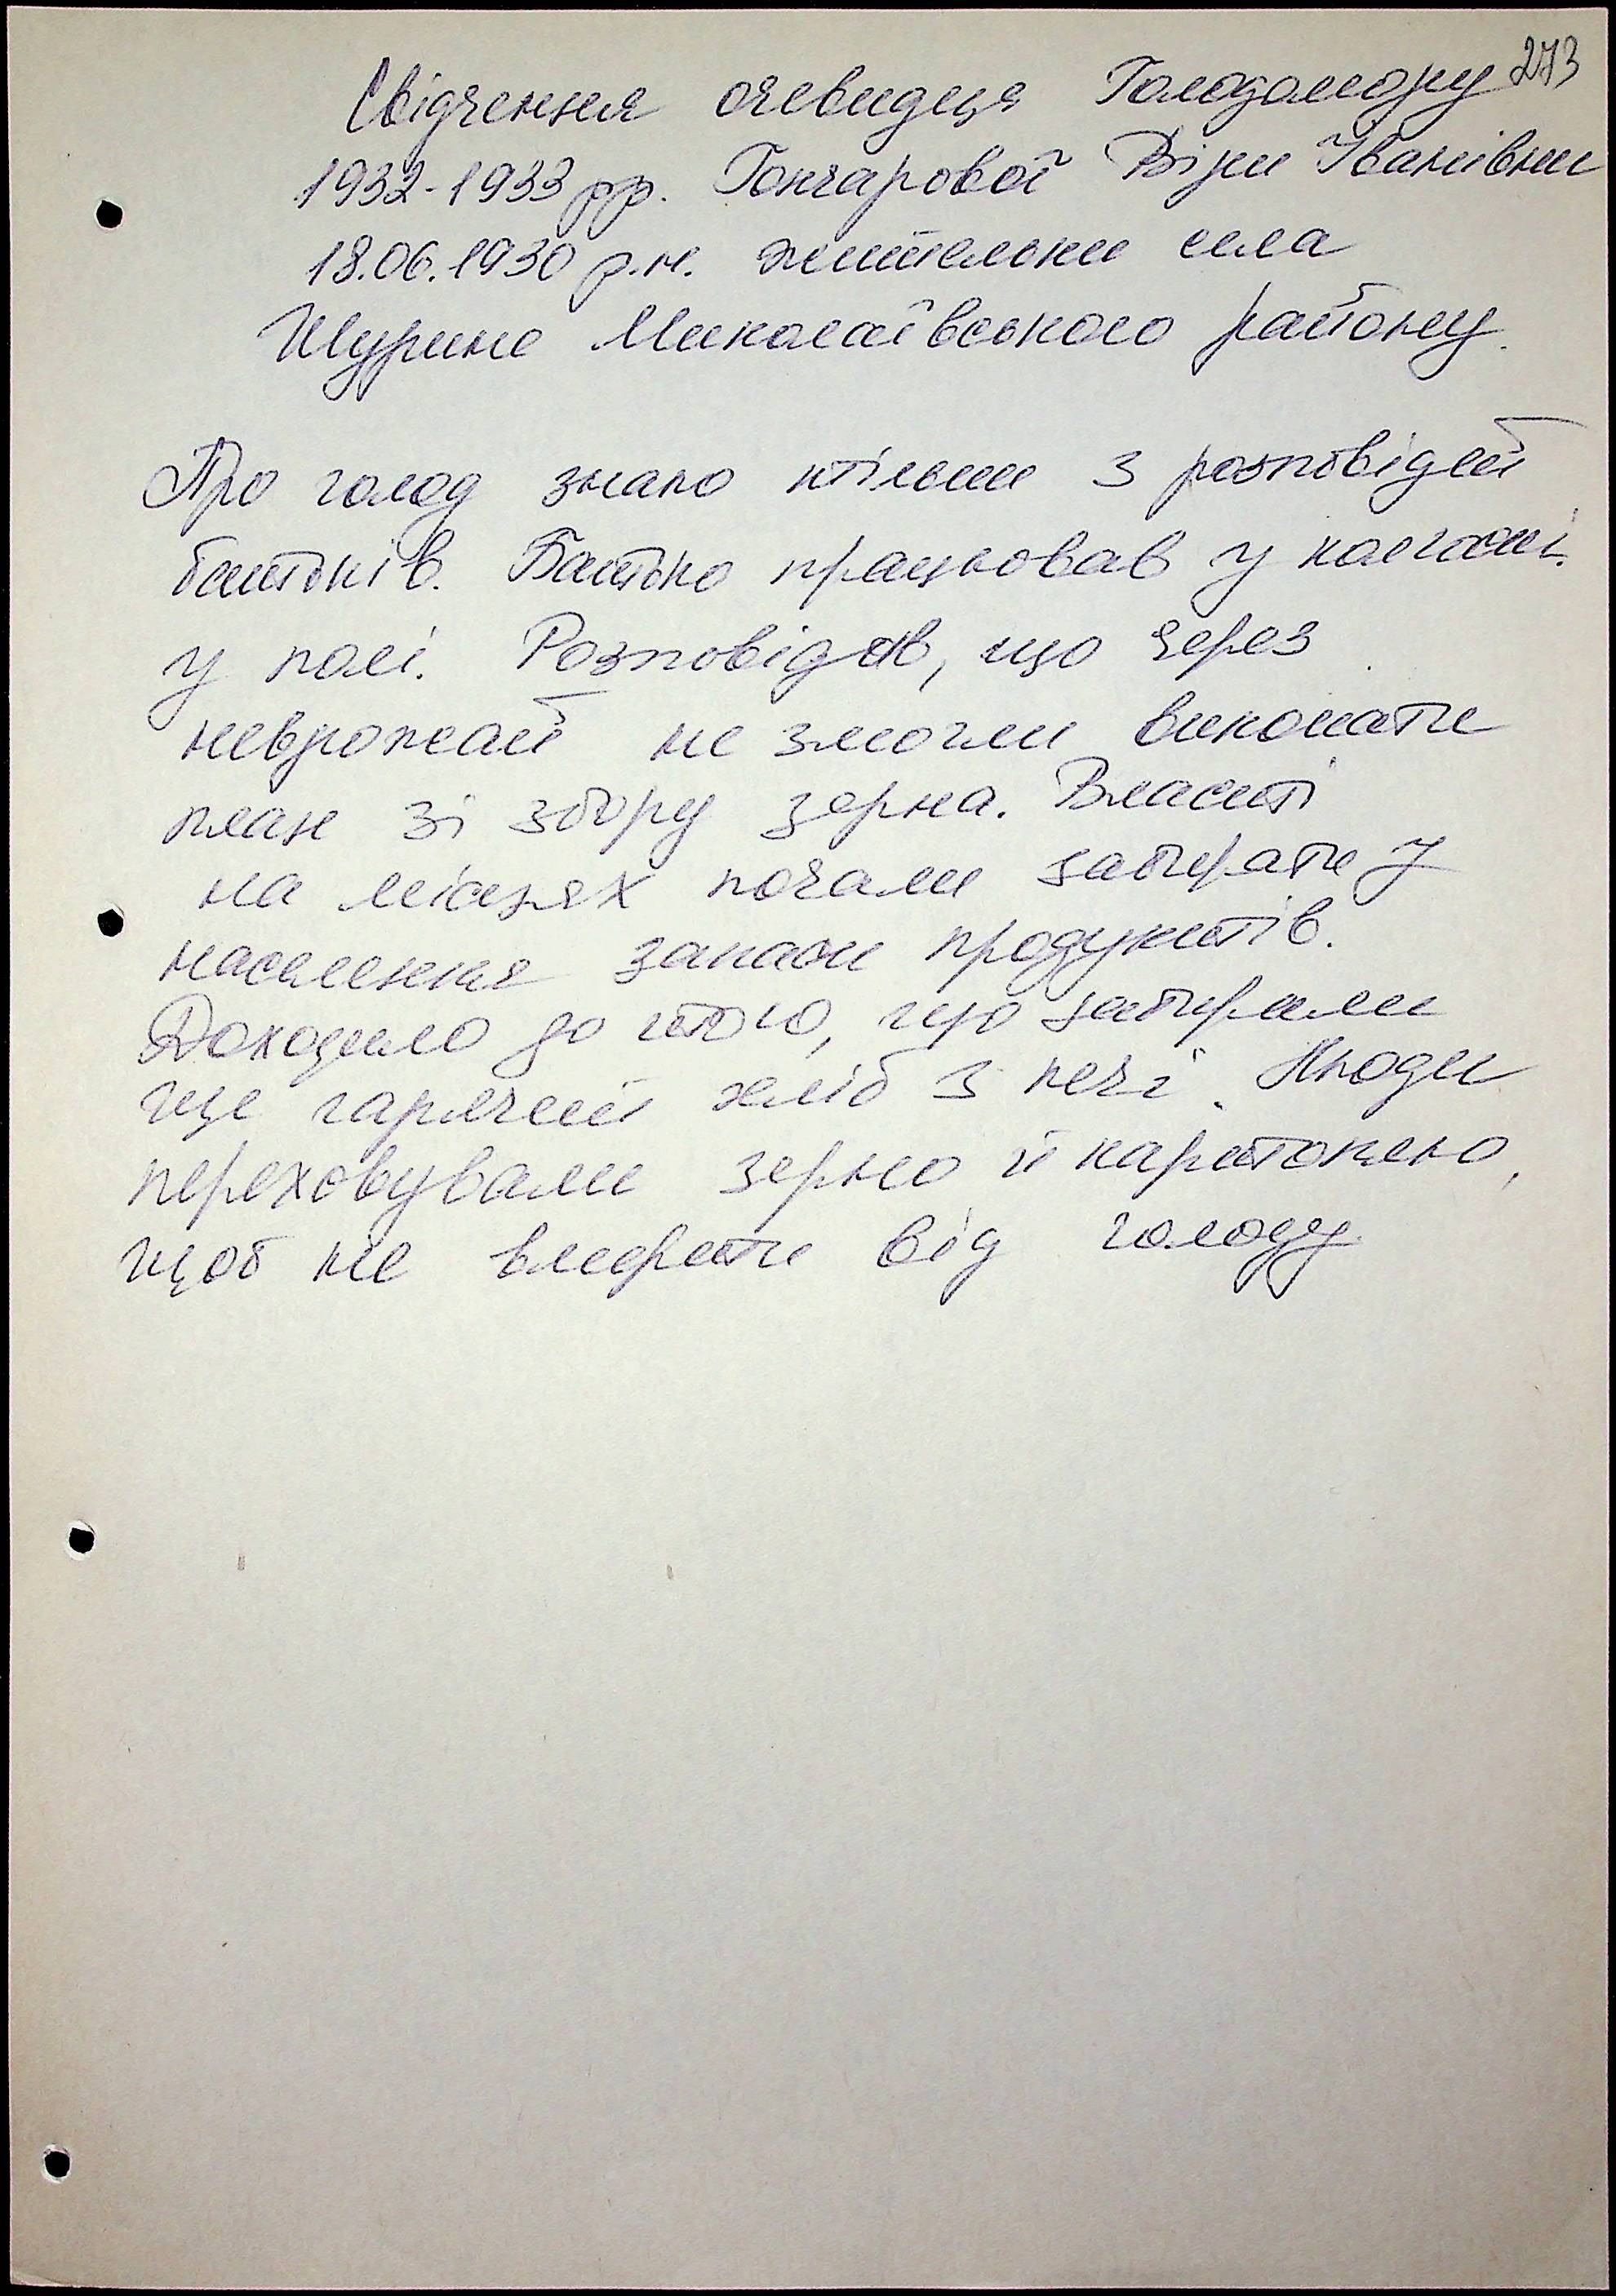 273
Свідчення очевидця Голодомору
1932-1933 рр. Гончарової Віри Іванівни
18.06.1930 р.н. жительки села
Шурине Миколаївського району.
Про голод знаю тільки з розповідей
батьків. Батько працював у колгоспі
у полі. Розповідав, що через
неврожай не змогли виконати
план зі збору зерна. Власті
на місцях почали забирати у
населення запаси продуктів.
Доходило до того, що забирали
ще гарячий хліб з печі. Люди
переховували зерно й картоплю,
щоб не вмерти від голоду.